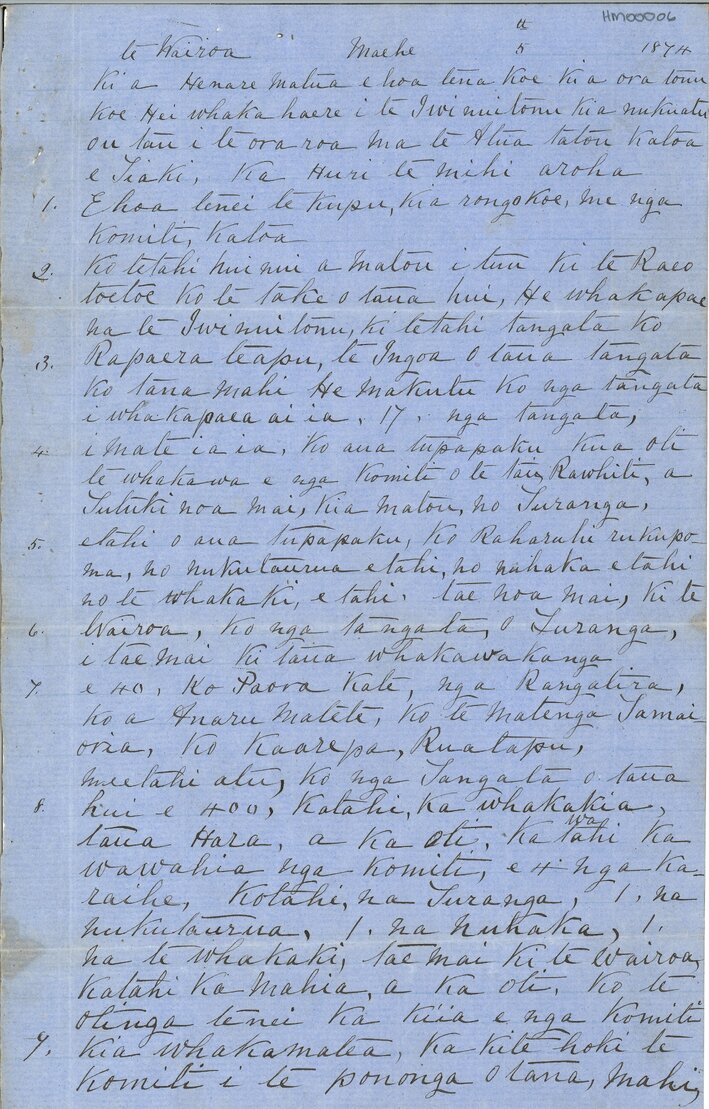 HM00006
te Wairoa Maehe 5 1874
Ki a Henare Matua e hoa tena koe kia ora tonu
koe Hei whaka haere i te Iwi nui tonu kia nukuatu
ou tau i te ora roa ma te Atua tatou katoa
e Tiaki, Ka Huri te mihi aroha
1. E hoa tenei te kupu, kia rongo koe, me nga
Komiti, Katoa
2. Ko tetahi hui nui a matou i tuu ki te Raeo
toetoe ko te take o taua hui, He whakapae
na te Iwi nui tonu, ki tetahi tangata ko
3. Rapaera teapu, te Ingoa o taua tangata
ko tana mahi He makutu ko nga tangata
i whakapaea ai ia, 17. nga tangata,
4. i mate ia ia, Ko aua tupapaku kua oti
te whakawa e nga Komiti o te tai Rawhiti, a
Tutuki noa mai, kia matou, no Turanga,
5. etahi o aua tupapaku, Ko Raharuhi rukupo-
ma, no nukutaurua etahi, no nahaka etahi
no te whakaki, e tahi. tae noa mai, ki te
6. Wairoa, Ko nga tangata, o Turanga,
i tae mai ki taua whakawakanga
7. e 40, Ko Paora Kate, nga Rangatira,
ko a Anaru Matete, ko te matenga Tamai-
oria, Ko Kaarepa, Ruatapu,
me etahi atu, ko nga Tangata o taua
8. hui e 400, Katahi, ka whakakia,
taua Hara, a ka oti, Ka tawahi ka
wawahia nga Komiti, e 4 nga ka-
raihe, Kotahi, na Turanga, 1. na
nukutaurua, 1. na nuhaka, 1.
na te whakaki, tae mai ki te Wairoa,
Katahi ka Mahia, a ka oti, Ko te
otinga tenei ka kiia e nga Komiti
9. Kia whakamatea, ka kite hoki te
Komiti i te pononga o tana, mahi,